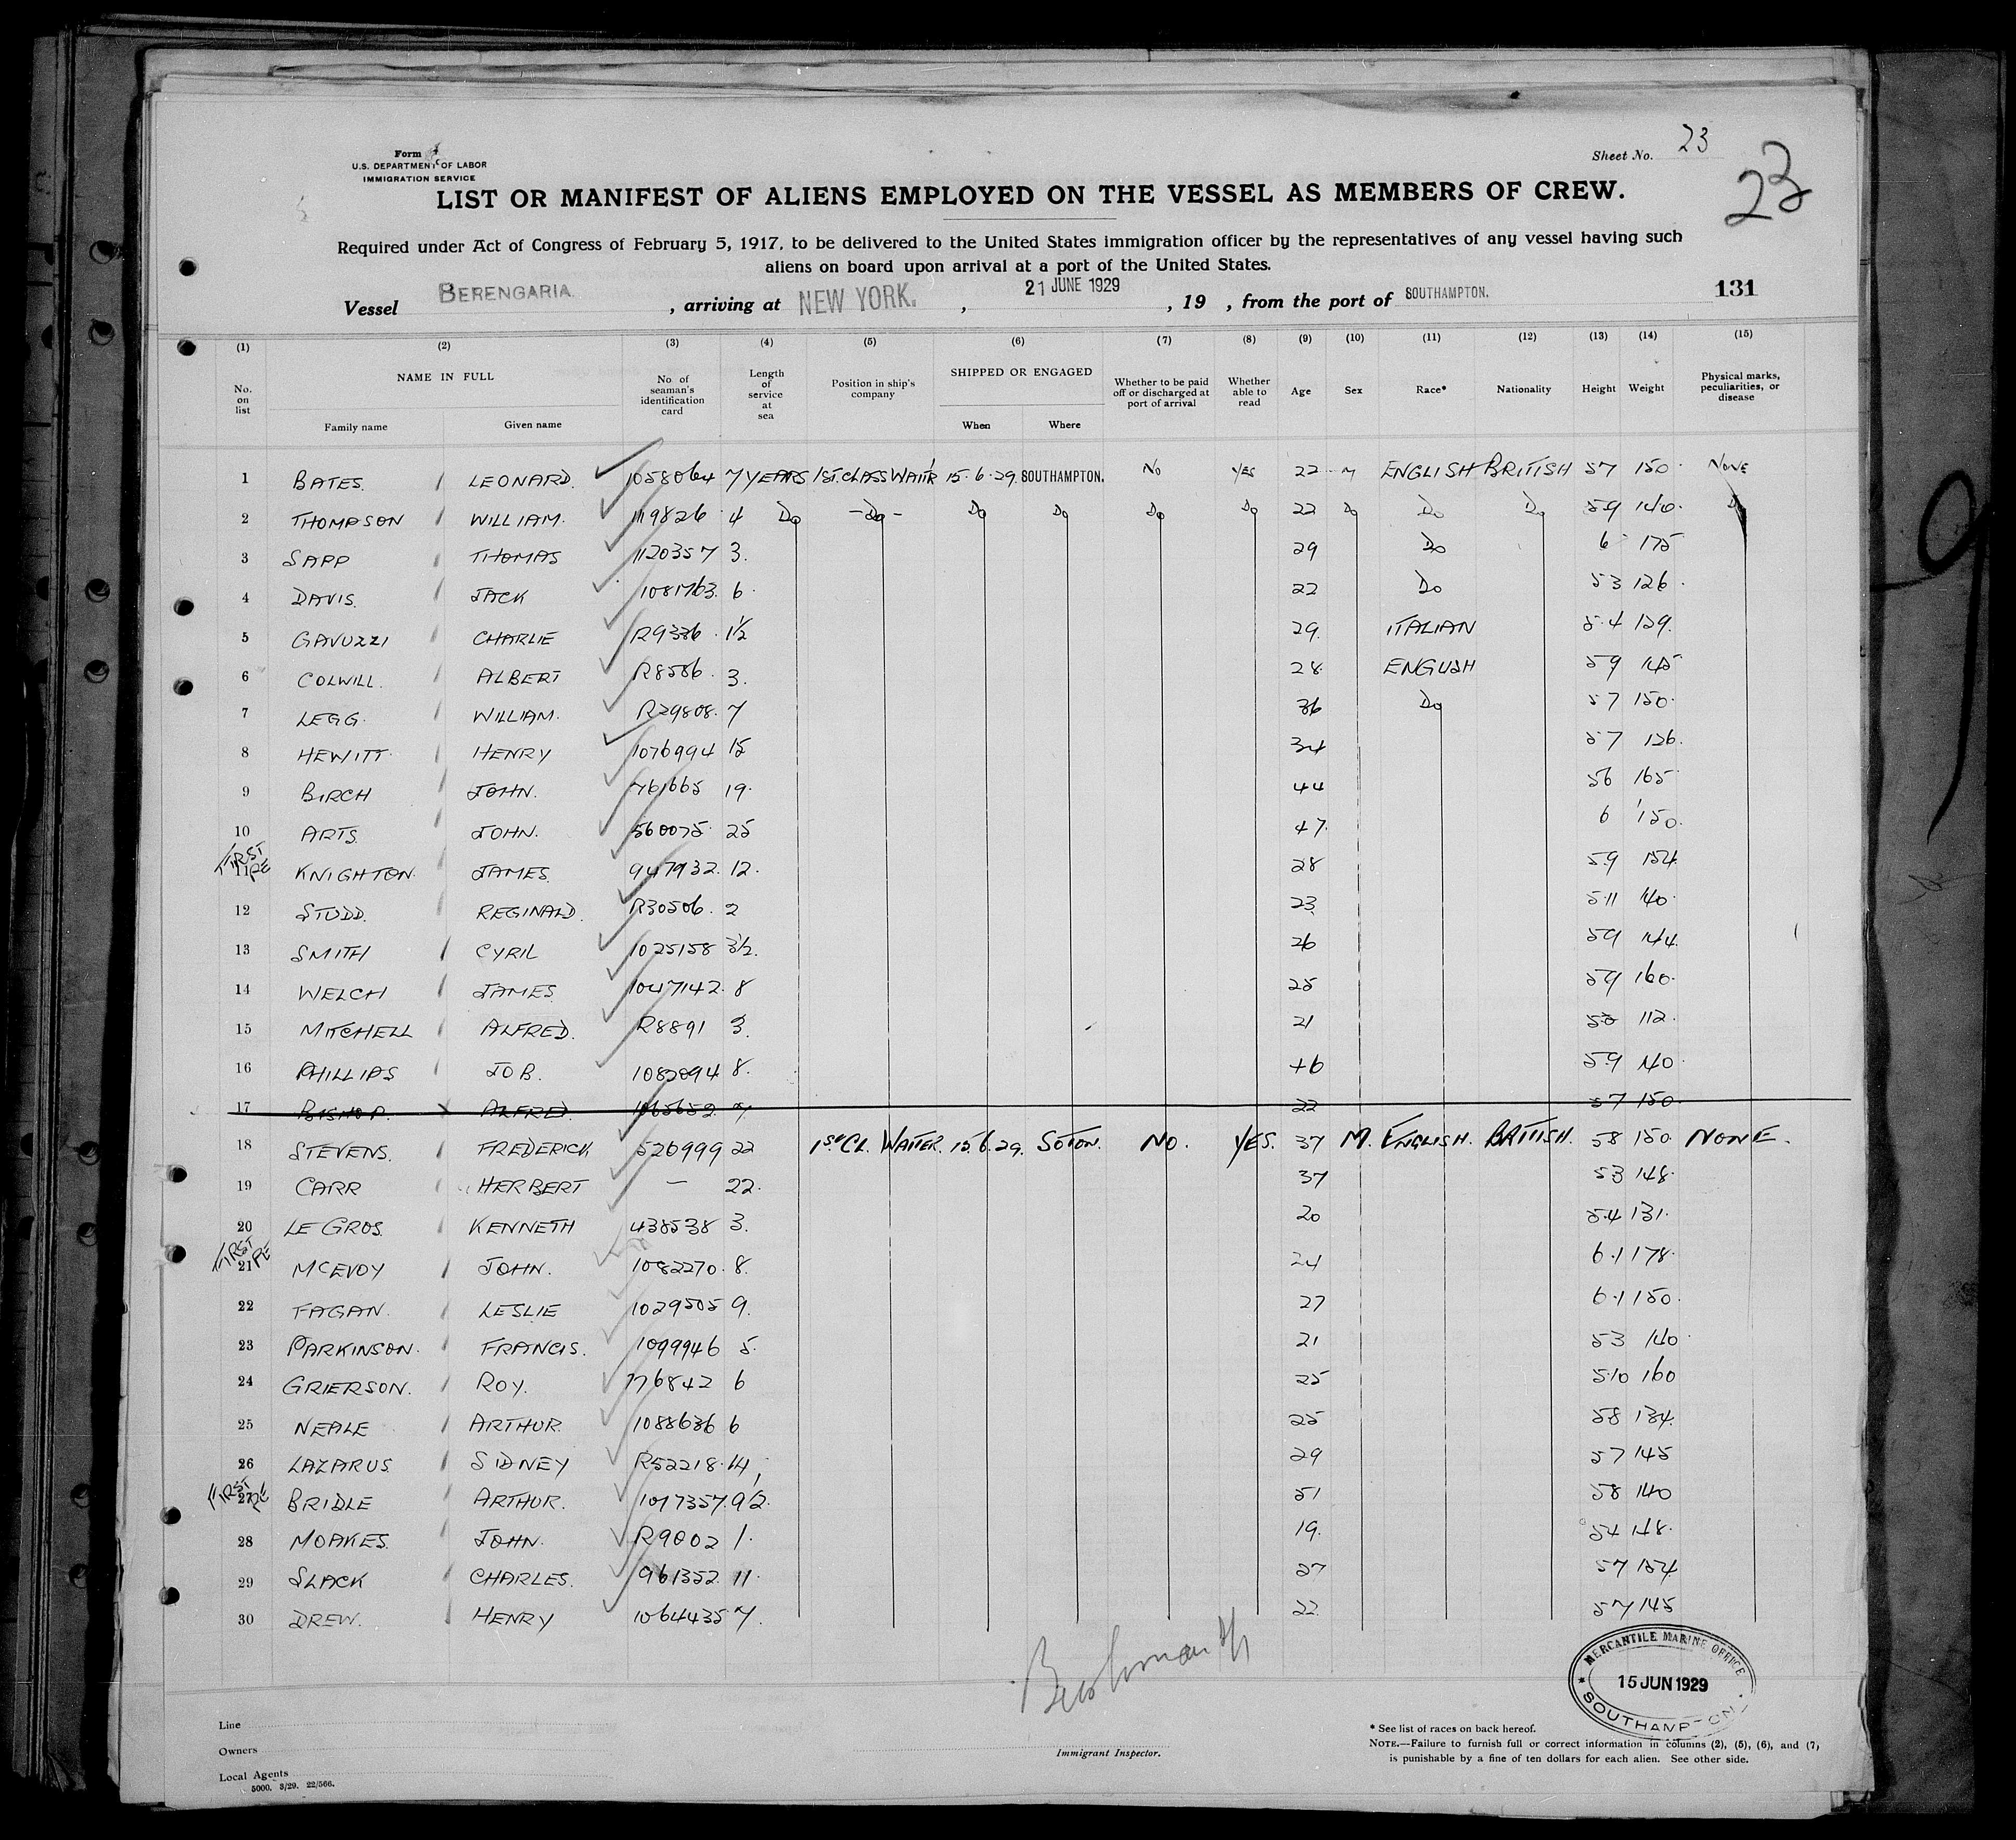 Sheet No. 23
23
Form
U.S. DEPARTMENT OF LABOR
IMMIGRATION SERVICE
LIST OR MANIFEST OF ALIENS EMPLOYED ON THE VESSEL AS MEMBERS OF CREW.
Required under Act of Congress of February 5, 1917, to be delivered to the United States immigration officer by the representatives of any vessel having such
aliens on board upon arrival at a port of the United States.
Vessel BERENGARIA , arriving at NEW YORK. , 21 JUNE 1929 , 19 , from the port of SOUTHAMPTON. 131
(1) (2) (3) (4) (5) (6) (7) (8) (9) (10) (11) (12) (13) (14) (15)
No. on list NAME IN FULL Family name Given name No. of seaman's identification card Length of service at sea Position in ship's company SHIPPED OR ENGAGED When Where Whether to be paid off or discharged at port of arrival Whether able to read Age Sex Race* Nationality Height Weight Physical marks, peculiarities, or disease
1 BATES. LEONARD. 1058064 7 YEARS 1ST. CLASS WAIT'R 15.6.29. SOUTHAMPTON. No YES 22 M ENGLISH BRITISH 57 150. NONE
2 THOMPSON WILLIAM. 1119826 4 Do -Do- Do Do Do Do 22 Do Do Do 59 140. Do
3 SAPP THOMAS 1120357 3. 29 Do 6 175
4 DAVIS. JACK 1081763. 6. 22 Do 53 126.
5 GAVUZZI CHARLIE R9336. 1½ 29. ITALIAN 5.4 129.
6 COLWILL. ALBERT R8586. 3. 28. ENGLISH 59 145
7 LEGG. WILLIAM. R29808. 7 36 Do 57 150.
8 HEWITT. HENRY 1076994 15 34 57 126.
9 BIRCH JOHN. 761665 19. 44 56 165
10 ARTS. JOHN. 560075. 25 47. 6 150.
FIRST
11 KNIGHTON. JAMES. 947932. 12. 28 59 154.
12 STUDD. REGINALD. R30506. 2 23. 5.11 140.
13 SMITH CYRIL 1025158 3½. 26 59 144.
14 WELCH JAMES. 1047142. 8 25 59 160.
15 MITCHELL ALFRED. R8891 3. 21 112.
16 PHILLIPS JOB. 1082094 8. 46 59 140.
17 BISHOP. ALFRED. 1065652. 7 22 57 150.
18 STEVENS. FREDERICK 520999 22 1st CL. WAITER. 15.6.29. SOTON. NO. YES. 37 M. ENGLISH. BRITISH. 58 150 NONE.
19 CARR HERBERT — 22. 37 53 148.
20 LE GROS. KENNETH 438538 3. 20 5.4 131.
FIRST
21 MCEVOY JOHN. 1082270. 8. 24 6.1 178.
22 FAGAN. LESLIE 1029505 9. 27 6.1 150.
23 PARKINSON. FRANCIS. 1099946 5. 21 53 140.
24 GRIERSON. ROY. 776842 6 25 5.10 160
25 NEALE ARTHUR. 1088636 6 25 58 134.
26 LAZARUS. SIDNEY R52218. 14 29 57 145
FIRST
27 BRIDLE ARTHUR. 1017357. 9½. 51 58 140
28 MOAKES. JOHN. R9002 1. 19. 54 148.
29 SLACK CHARLES. 961352. 11. 27 57 154.
30 DREW. HENRY 1064435 7. 22. 57 145
MERCANTILE MARINE OFFICE
15 JUN 1929
SOUTHAMPTON
Line
Owners
Local Agents
5000. 3/29. 22/566.
Immigrant Inspector.
* See list of races on back hereof.
NOTE.—Failure to furnish full or correct information in columns (2), (5), (6), and (7),
is punishable by a fine of ten dollars for each alien. See other side.